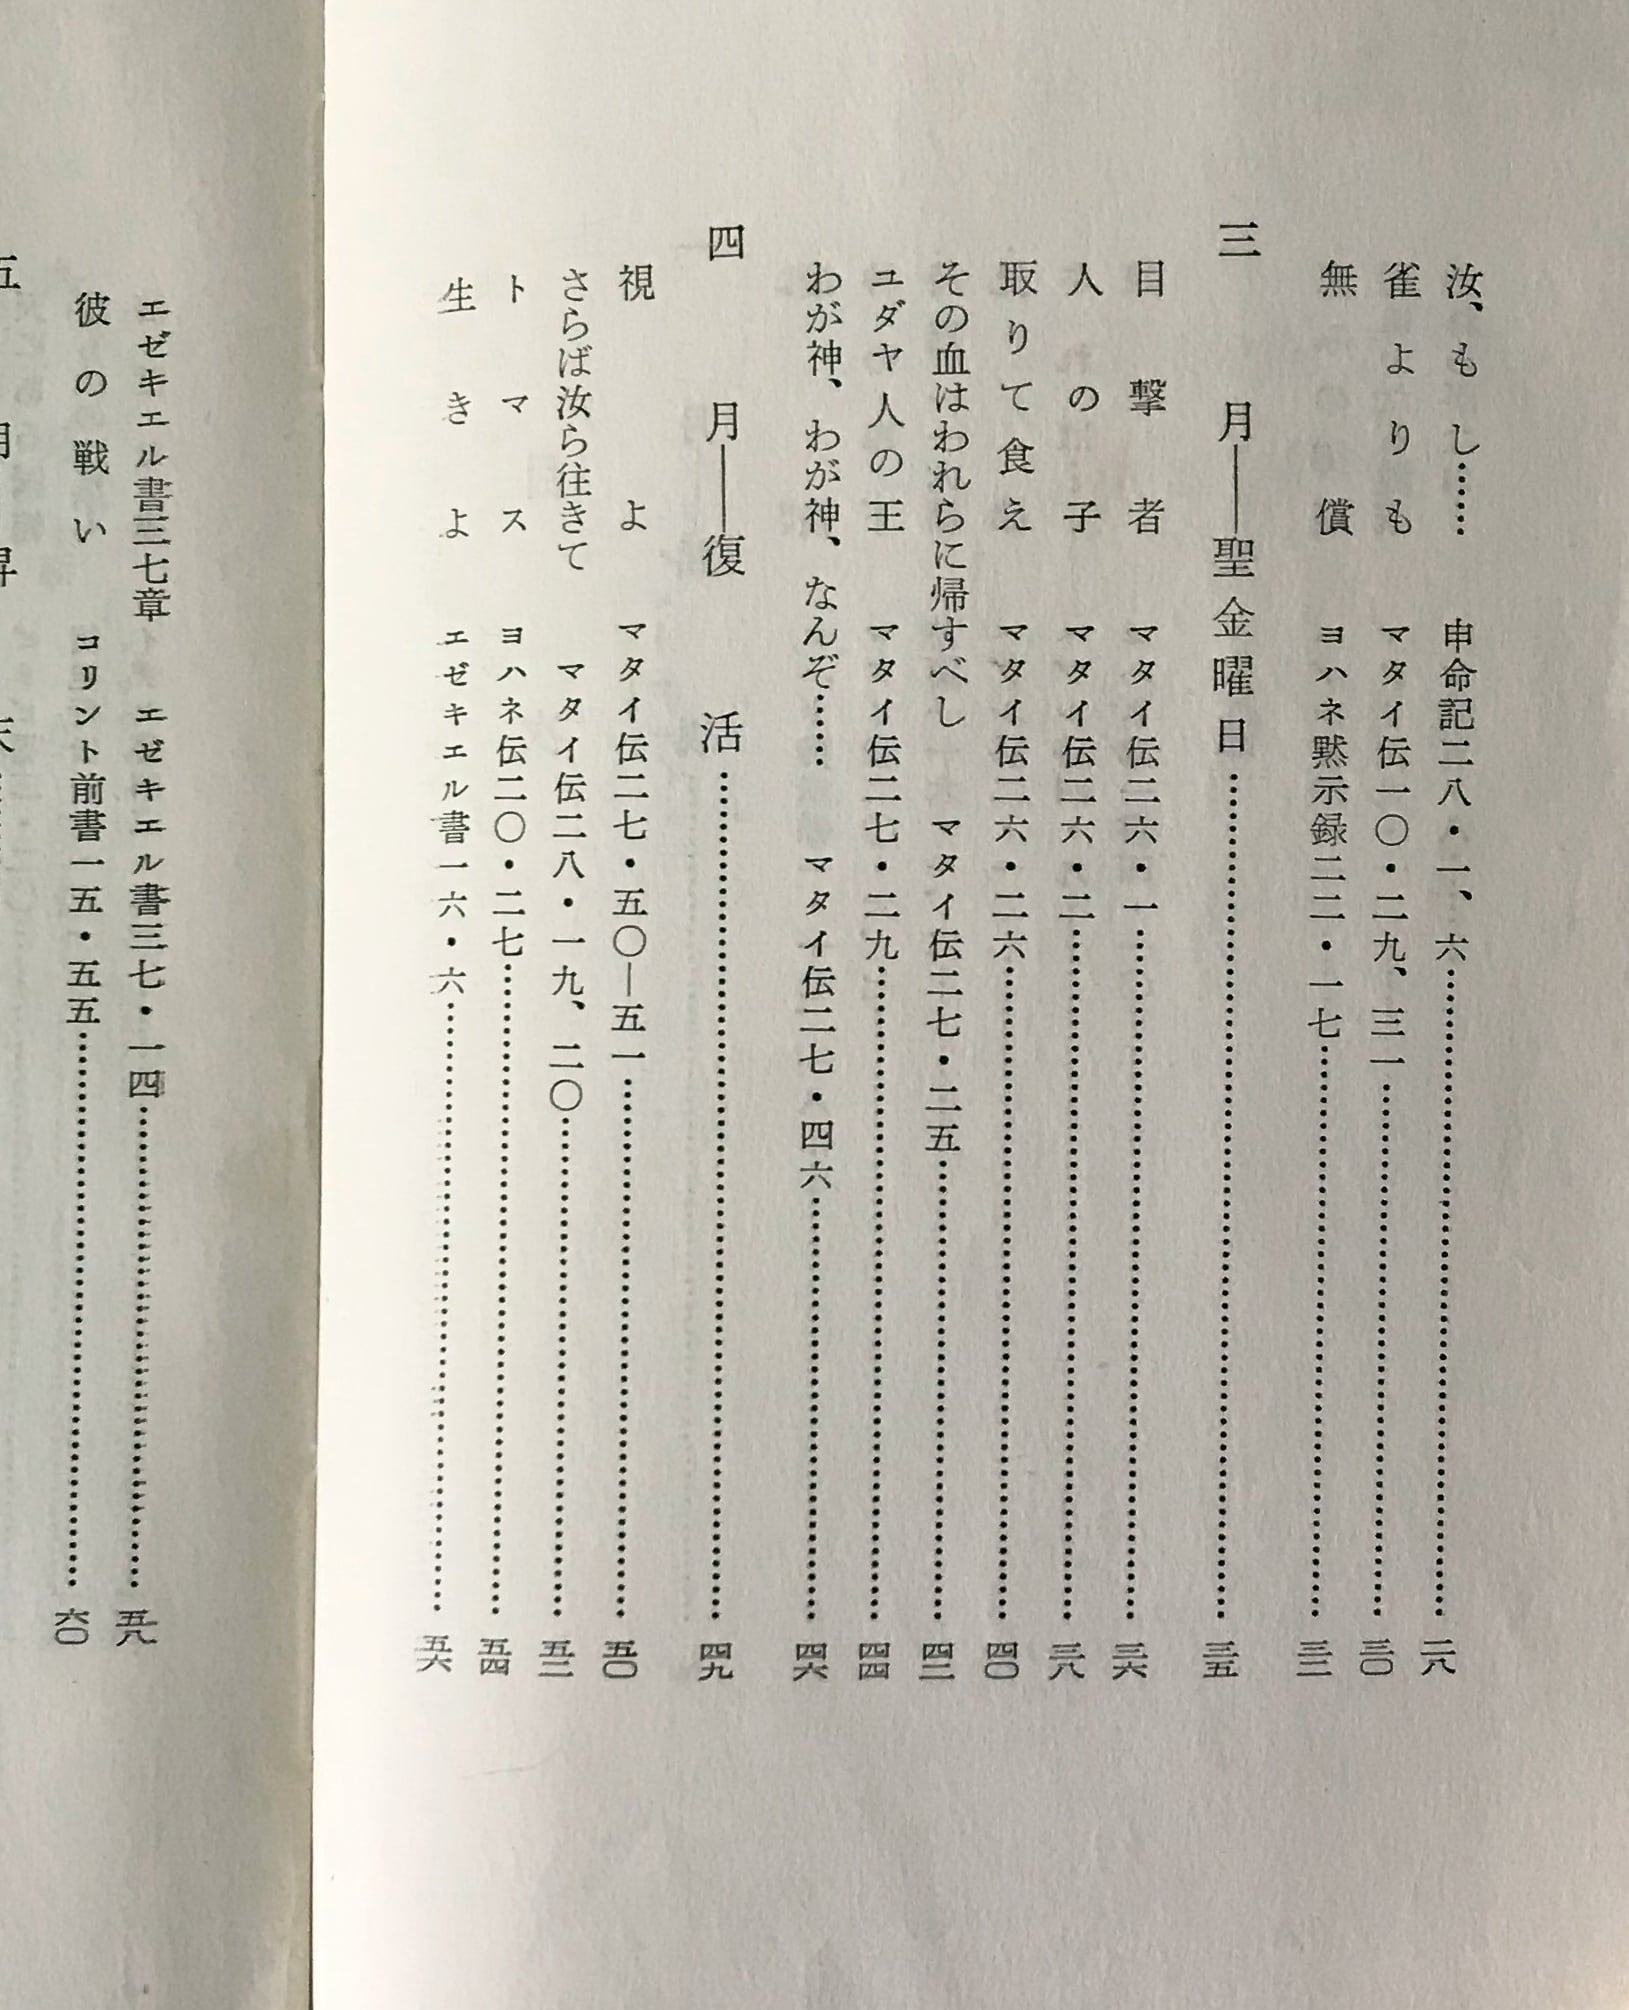 汝、もし…… 申命記二八・一、六……二八
雀よりも マタイ伝一〇・二九、三一……三〇
無償 ヨハネ黙示録二二・一七……三三
三月―聖金曜日……三五
目撃者 マタイ伝二六・一……三六
人の子 マタイ伝二六・二……三八
取りて食え マタイ伝二六・二六……四〇
その血はわれらに帰すべし マタイ伝二七・二五……四二
ユダヤ人の王 マタイ伝二七・二九……四四
わが神、わが神、なんぞ…… マタイ伝二七・四六……四六
四月―復活……四九
視よ マタイ伝二七・五〇―五一……五〇
さらば汝ら往きて マタイ伝二八・一九、二〇……五二
トマス ヨハネ伝二〇・二七……五四
生きよ エゼキエル書一六・六……五六
エゼキエル書三七章 エゼキエル書三七・一四……五八
彼の戦い コリント前書一五・五五……六〇
五月